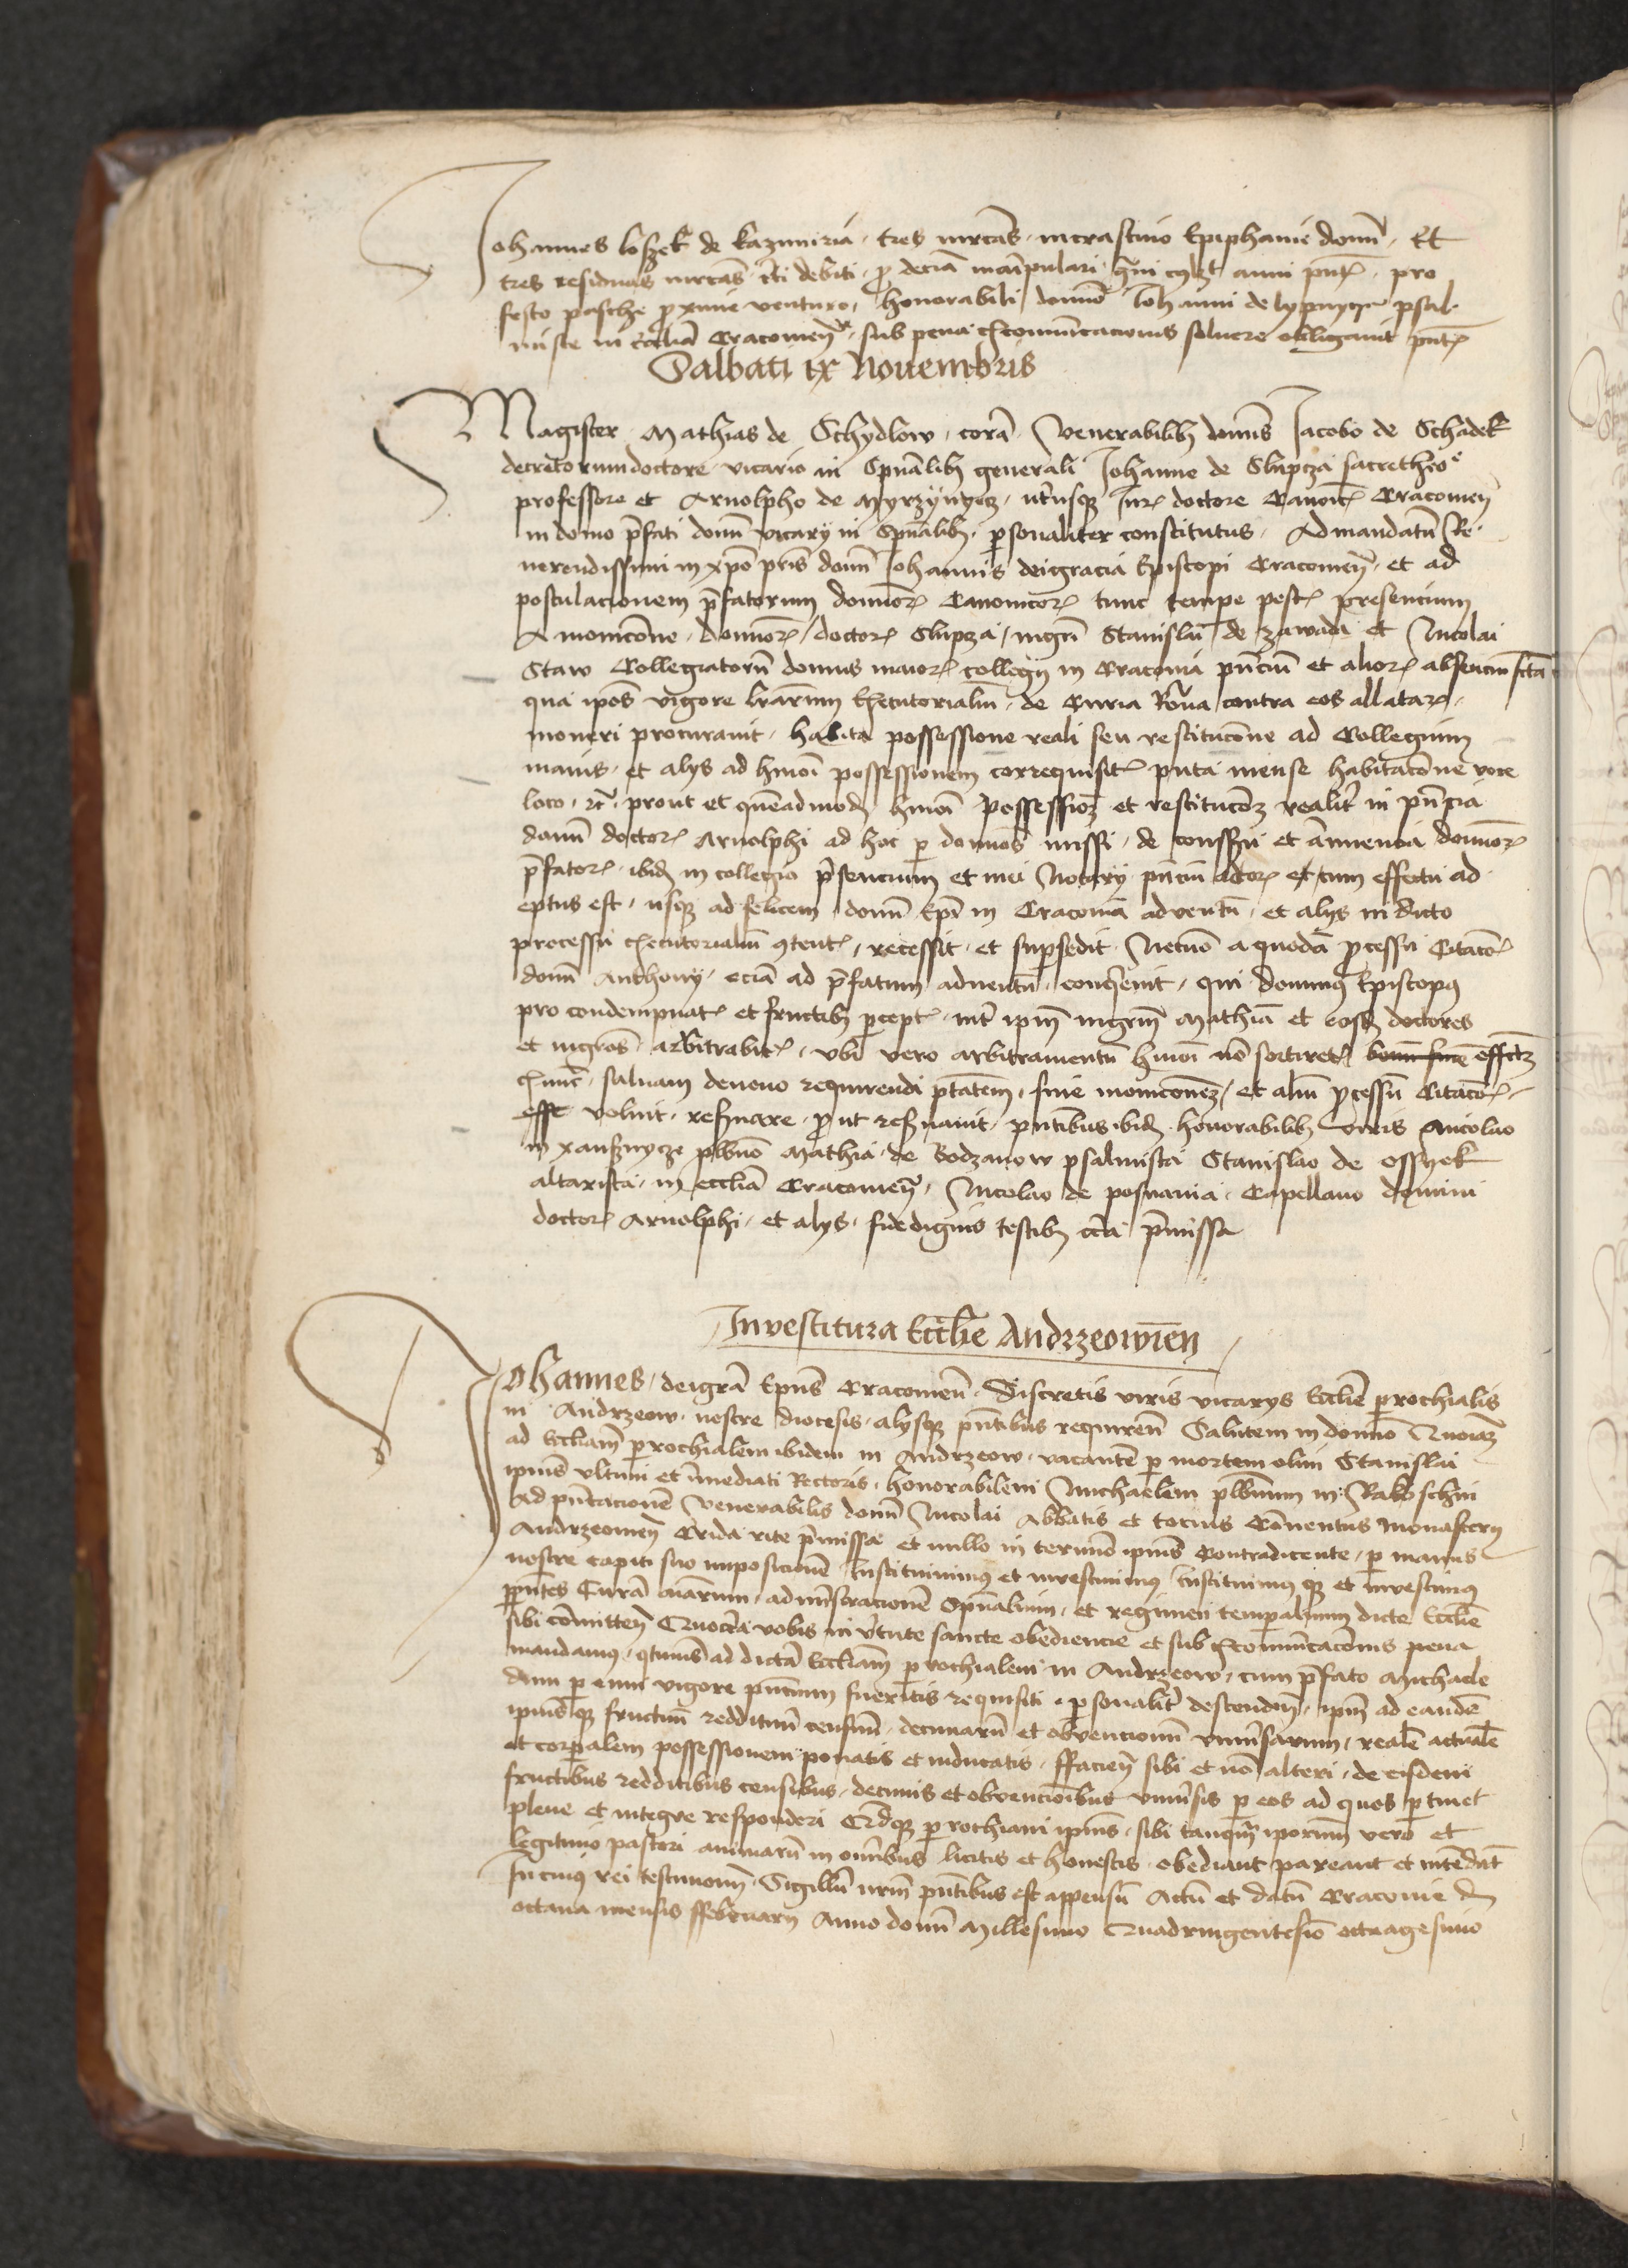 Johannes loszek de kazimiria tres mrcas incrastino Epiphanie domi Et
tres residuas mrcas debiti p decia manipulari anni pnt pro
festo pasche pxime venturo honorabili domno Johanni de lypnycza psal
miste in Ecclia Cracouien sub pena excomunicacionis soluere obligauit pnt
Sabbati ix Nouembris
Magister Mathias de Schydlow cora Venerabilib domis Jacobo de Schadek
decretorum doctore vicario in Spualib generali Johanne de Slupcza sacre theoe
professore et Arnolpho de Myrzynycz utriusq Jur doctore Canoic Cracouien
in domo pfati domi vicarij in Spualib psonaliter constitutus Ad mandatu Re
uerendissimi in xpo pris domi Johannis dei gracia Episcopi Cracouien et ad
postulacionem pfatorum domor Canonicor tunc tempe pest presencium
A monicone domor doctor Slupcza mgri Stanislai de zawada et Nicolai
Staw Collegiatoru domus maior collegij in Cracouia pnciu et alior absenciu fcta
qua ipos vigore lrarum Executorialiu de Curia Roua contra eos allatar
moneri procurauit habita possessione reali seu restitucone ad Collegium
maius et alys ad hmoi possessionem correquisit puta mense habitacone voce
loco rc prout et quead mod hmoi possession et restitucoz realit in pncia
domi doctor Arnolphi ad hoc p domos missi de consensu et annuencia domor
pfator ibid in collegio psencium et mei Notarij pnciu actor et cum effectu ad
eptus est usq ad felicem domi Epi in Cracouia aduentu et alys in dicto
processu executorialiu content recessit et supsedit Necno a quoda pcessu Citaco
domi Anthonij ecia ad pfatum aduentu conquieuit qui dominus Episcopus
pro condempnat et fructib pcept int ipm mgrm Mathia et eosd doctores
et mgros arbitrabit vbi vero arbitramentu hmoi no sortiret bonu fine effctu
extunc saluam denouo requirendi ptatem siue monicionez et aliu pcessu Citaco
esse voluit reseruare put reseruauit pntibus ibid honorabilib viris Nicolao
in xanznycze plbno Mathia de Bodzanow psalmista Stanislao de Ossyek
altarista in ecclia Cracouien Nicolao de posnania Capellano domini
doctor Arnolphi et alys fidedignis testib ccta pmissa
Investitura Ecclie Andrzeowien
Johannes dei gra Epus Cracouien Discretis viris vicarys Ecclie prochialis
in Andrzeow nostre diocesis alysq pntibus requiren Salutem in domno Quoiaz
ad Eccliam prochialem ibidem in Andrzeow vacante p mortem olim Stanislai
ipius vltimi et imediati Rectoris honorabilem Michaelem plbnum in Rakoschin
Ad pntacione Venerabilis domi Nicolai Abbatis et tocius Couentus monasterij
Andrzeouien Crida rite pmissa et nullo in termno ipius Contradicente p manus
nostre capiti suo imposicione Instituimus et inuestiuimus Instituimusq et inuestimus
pntes Cura aiarum administracione Spualium et regimen tempalium dicte Ecclie
sibi comitten Quocca vobis in vtute sancte obediencie et sub excomunicacionis pena
mandamus qtinus ad dicta Eccliam prochialem in Andrzeow cum pfato Michaele
dum p eum vigore pncium fueritis requisiti psonalit descenden ipm ad eande
ipiusq fructuu reddituu censuu decimaru et obuencionu vniusarum reale actuale
et corpalem possessionem ponatis et inducatis ffacien sibi et no alteri de eisdem
fructibus redditibus censibus decimis et obuencioibus vniusis p eos ad quos ptinet
plene et integre responderi Quodq prochiani ipius sibi tanqm iporum vero et
legitimo pastori animaru in omibus licitis et honestis obediant pareant et intedat
In cuius rei testimoniu Sigillu nrm pntibus est appensu Actu et datu Cracouie d
octaua mensis ffebruarij Anno domi Millesimo Quadringentesio octuagesimo